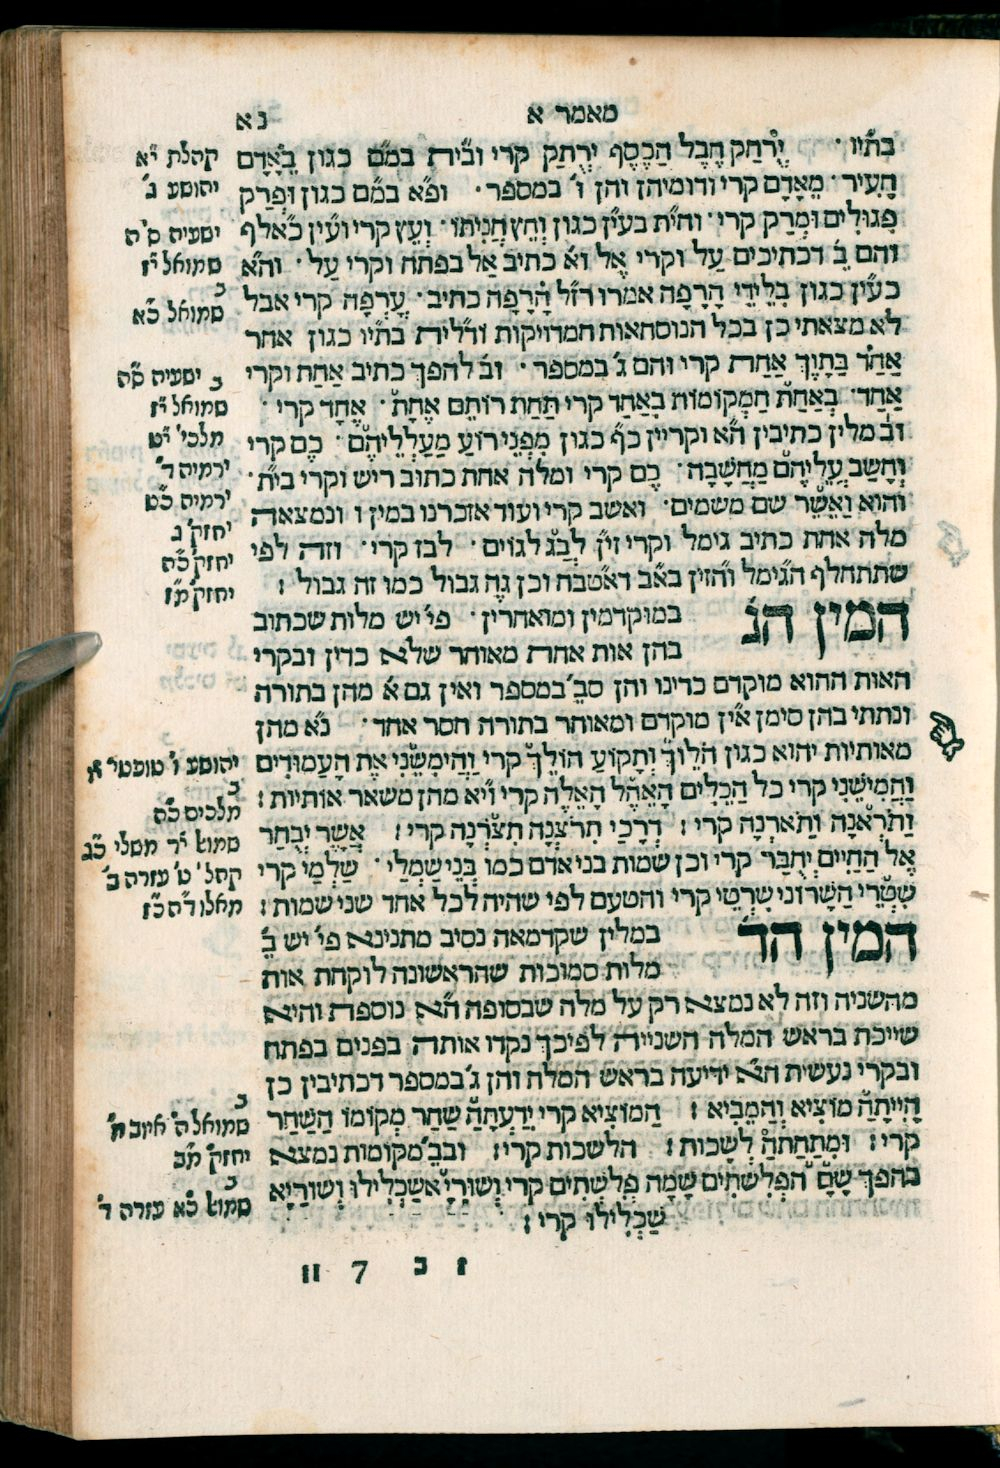 מאמר א
נא
בתיו · יֵרָחֵק חֶבֶל הַכֶּסֶף יֵרָתֵק קרי וב״ית במ״ם כגון בֵּאָדָם
הָעִיר · מֵאָדָם קרי ודומיהן והן ו׳ במספר · ופ״א במ״ם כגון וּפְרַק
פִּגּוּלִים וּמְרַק קרי · וחי״ת בעי״ן כגון וְחֵץ חֲנִיתוֹ · וְעֵץ קרי ועי״ן כאלף
והם ב׳ דכתיבים עַל וקרי אֶל וא׳ כתיב אַל בפתח וקרי עַל · וה״א
כעי״ן כגון בִּלִידֵי הָרָפָה אמרו רז״ל הָרָפָה כתיב · עָרְפָּה קרי אבל
לא מצאתי כן בכל הנוסחאות המדויקות ודלי״ת בתיו כגון אחר
אַחַד בַּתָּוֶךְ אַחַת קרי והם ג׳ במספר · וב׳ להפך כתיב אַחַת וקרי
אַחַד · בְּאַחַת הַמְּקוֹמוֹת בְּאַחַד קרי תַּחַת רוֹתֵם אֶחָת · אֶחָד קרי ·
וב׳ מלין כתיבין ה״א וקריין כ״ף כגון מִפְּנֵי רוֹעַ מַעַלְלֵיהֶם · כֶם קרי
וְחָשַׁב עֲלֵיהֶם מַחֲשָׁבָה · כֶם קרי ומלה אחת כתוב ריש וקרי בי״ת ·
והוא וַאֲשֶׁר שם משמים · ואשב קרי ועוד אזכרנו במין ו ונמצאה
מלה אחת כתיב גימל וקרי זי״ן לְבַג לגוים · לבז קרי · וזה לפי
שתתחלף הגימל והזין בא״ב דאטבח וכן גֵה גבול כמו זה גבול :
המין הג׳ במוקדמין ומאוחרין · פי׳ יש מלות שכתוב
בהן אות אחת מאוחר שלא כדין ובקרי
האות ההוא מוקדם כדינו והן סב׳ במספר ואין גם א׳ מהן בתורה
ונתתי בהן סימן אין מוקדם ומאוחר בתורה חסר אחד · נ״א מהן
מאותיות יהוא כגון הלוֹךְ וְתָקוֹעַ הוֹלֵךְ קרי וַהֲיְמִשֵׁנִי אֶת הָעַמּוּדִים
וַהֲמִישֵׁנִי קרי כל הַכֵּלִים הָאֵהֶל הָאֵלֶּה קרי וי״א מהן משאר אותיות :
וַתֹּרְאֶנָה וַתֹּארְנָה קרי : דְּרָכַי תִּרֹצֶנָה תִּצֹּרְנָה קרי : אֲשֶׁר יְבֻחַר
אֶל הַחַיִּים יְחֻבַּר קרי וכן שמות בני אדם כמו בְּנֵי שַׁמְלַי · שַׁלְמַי קרי
שִׁטְרַי הַשָּׁרוֹנִי שִׁרְטַי קרי והטעם לפי שהיה לכל אחד שני שמות :
המין הד׳ במלין שקדמאה נסיב מתנינא פי׳ יש ב׳
מלות סמוכות שהראשונה לוקחת אות
מהשניה וזה לא נמצא רק על מלה שבסופה ה״א נוספת והיא
שייכת בראש המלה השנייה לפיכך נקדו אותה בפנים בפתח
ובקרי נעשית ה״א ידיעה בראש המלה והן ג׳ במספר דכתיבין כן
הָיִיתָהַ מוֹצִיא וְהַמֵּבִיא : הַמּוֹצִיא קרי יִדַּעְתָּהַ שַׁחַר מְקוֹמוֹ הַשַּׁחַר
קרי : וּמִתַּחְתָּהַ לְשָׁכוֹת : הלשכות קרי : ובב׳ מקומות נמצא
בהפך שָׁם הפְּלִשְׁתִּים שָׁמָּה פְּלִשְׁתִּים קרי וְשׁוּרַיָּ אשכְלִילוּ וְשׁוּרַיָּא
שַׁכְלִילוּ קרי :
קהלת י״א
יהושע ג׳
ישעיה ס״ה
שמואל י״ז
ב
שמואל כ״א
ב ישעיה ס״ה
שמואל י״ז
מלכי׳ י״ט
ירמיה ד׳
ירמיה כ״ט
יחזק׳ ב
יחזק׳ כ״ה
יחזק׳ מ״ז
יהושע ו׳ שופטי׳ י״ו
ב
מלכים כ״ה
שמוא׳ י״ד משלי כ״ג
קהל׳ ט׳ עזרה ב׳
ב
שמואל ה׳ איוב ח׳
יחזק׳ מ״ב
ב
שמוא׳ כ״א עזרה ד׳
ז ב 7 II